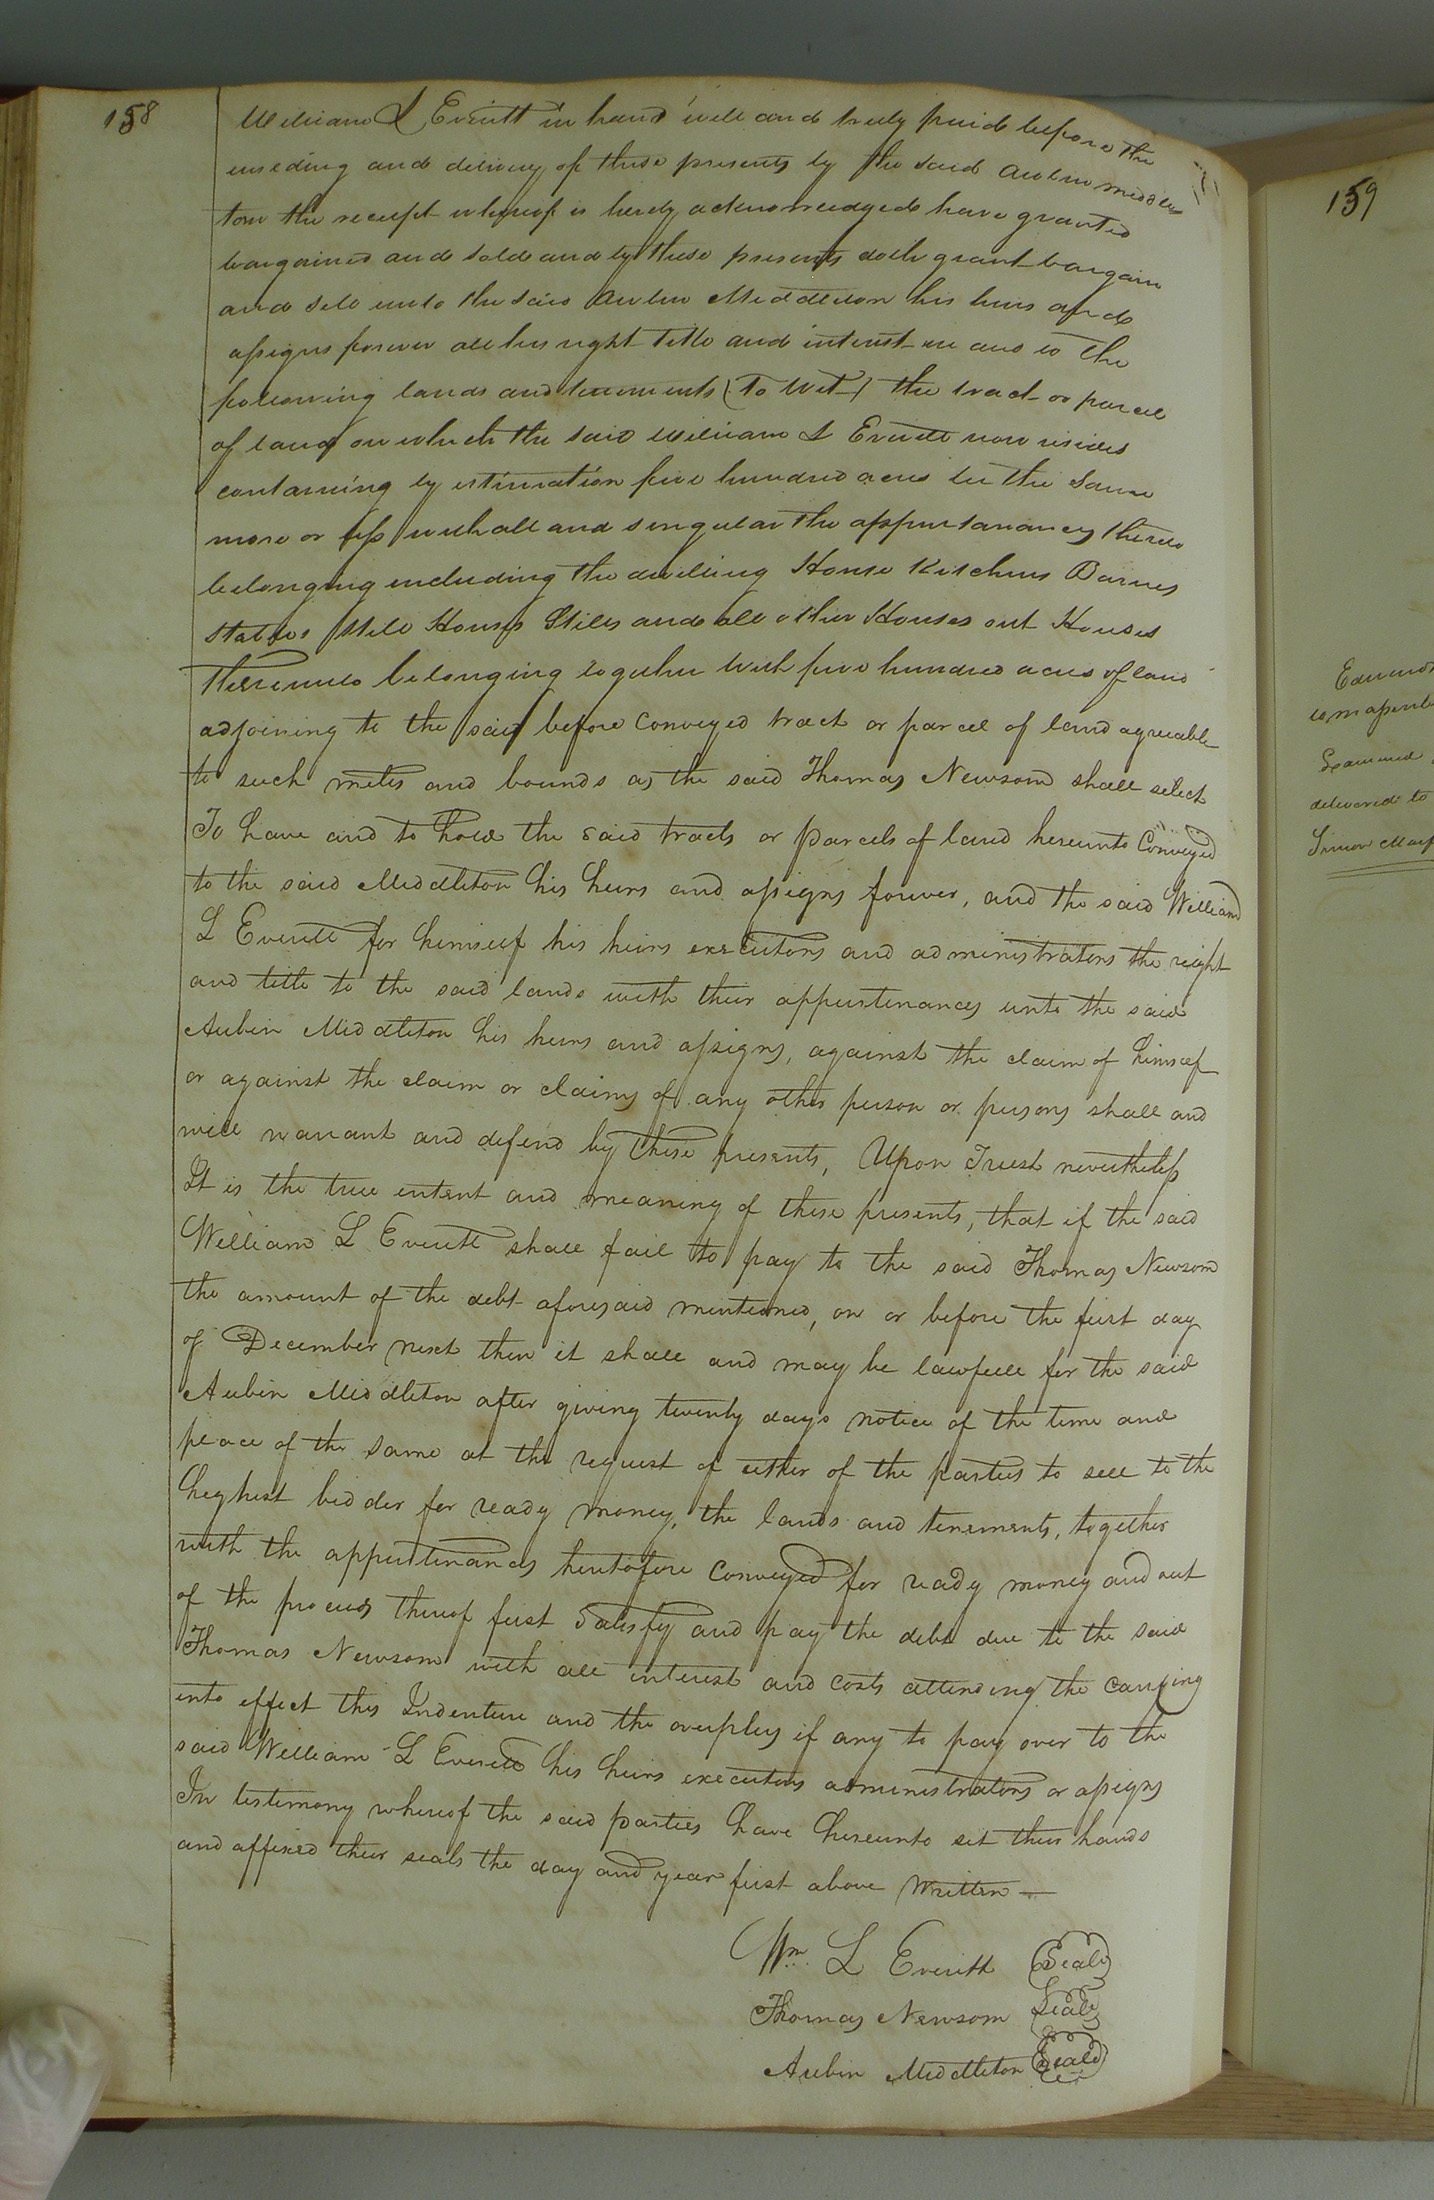 158
William L Everitt in hand well and truly paid before the
ensealing and delivery of these presents by the said Aubin Middle
ton the receipt whereof is hereby acknowledged have granted
bargained and sold and by these presents doth grant bargain
and sell unto the said Aubin Middleton his heirs and
assigns forever all his right title and interest in and to the
following lands and tenements (To Wit) the tract or parcel
of land on which the said William L Everitt now resides
containing by estimation five hundred acres be the same
more or less with all and singular the appurtanances thereto
belonging including the dwelling House Kitchens Barnes
Stables Still Houses Stills and all other Houses out Houses
thereunto belonging together with five hundred acres of land
adjoining to the said before conveyed tract or parcel of land agreeable
to such metes and bounds as the said Thomas Newsom shall select
To have and to hold the said tracts or parcels of land hereunto Conveyed
to the said Middleton his heirs and assigns forever, and the said William
L Everitt for himself his heirs executors and administrators the right
and title to the said lands with their appurtenances unto the said
Aubin Middleton his heirs and assigns, against the claim of himself
or against the claim or claims of any other person or persons shall and
will warrant and defend by these presents, Upon Trust nevertheless
It is the true intent and meaning of these presents, that if the said
William L Everitt shall fail to pay to the said Thomas Newsom
the amount of the debt aforesaid mentioned, on or before the first day
of December next then it shall and may be lawfull for the said
Aubin Middleton after giving twenty days notice of the time and
place of the same at the request of either of the parties to sell to the
highest bidder for ready money, the lands and tenements, together
with the appurtenances heretofore conveyed for ready money and out
of the proceeds thereof first Satisfy and pay the debt due to the said
Thomas Newsom with all interest and costs attending the carrying
into effect this Indenture and the overplus if any to pay over to the
said William L Everitt his heirs executors administrators or assigns
In testimony whereof the said parties have hereunto set their hands
and affixed their seals the day and year first above Written
Wm. L Everitt Seal
Thomas Newsom Seal
Aubin Middleton Seal
159
Examined
delivered to
Simon